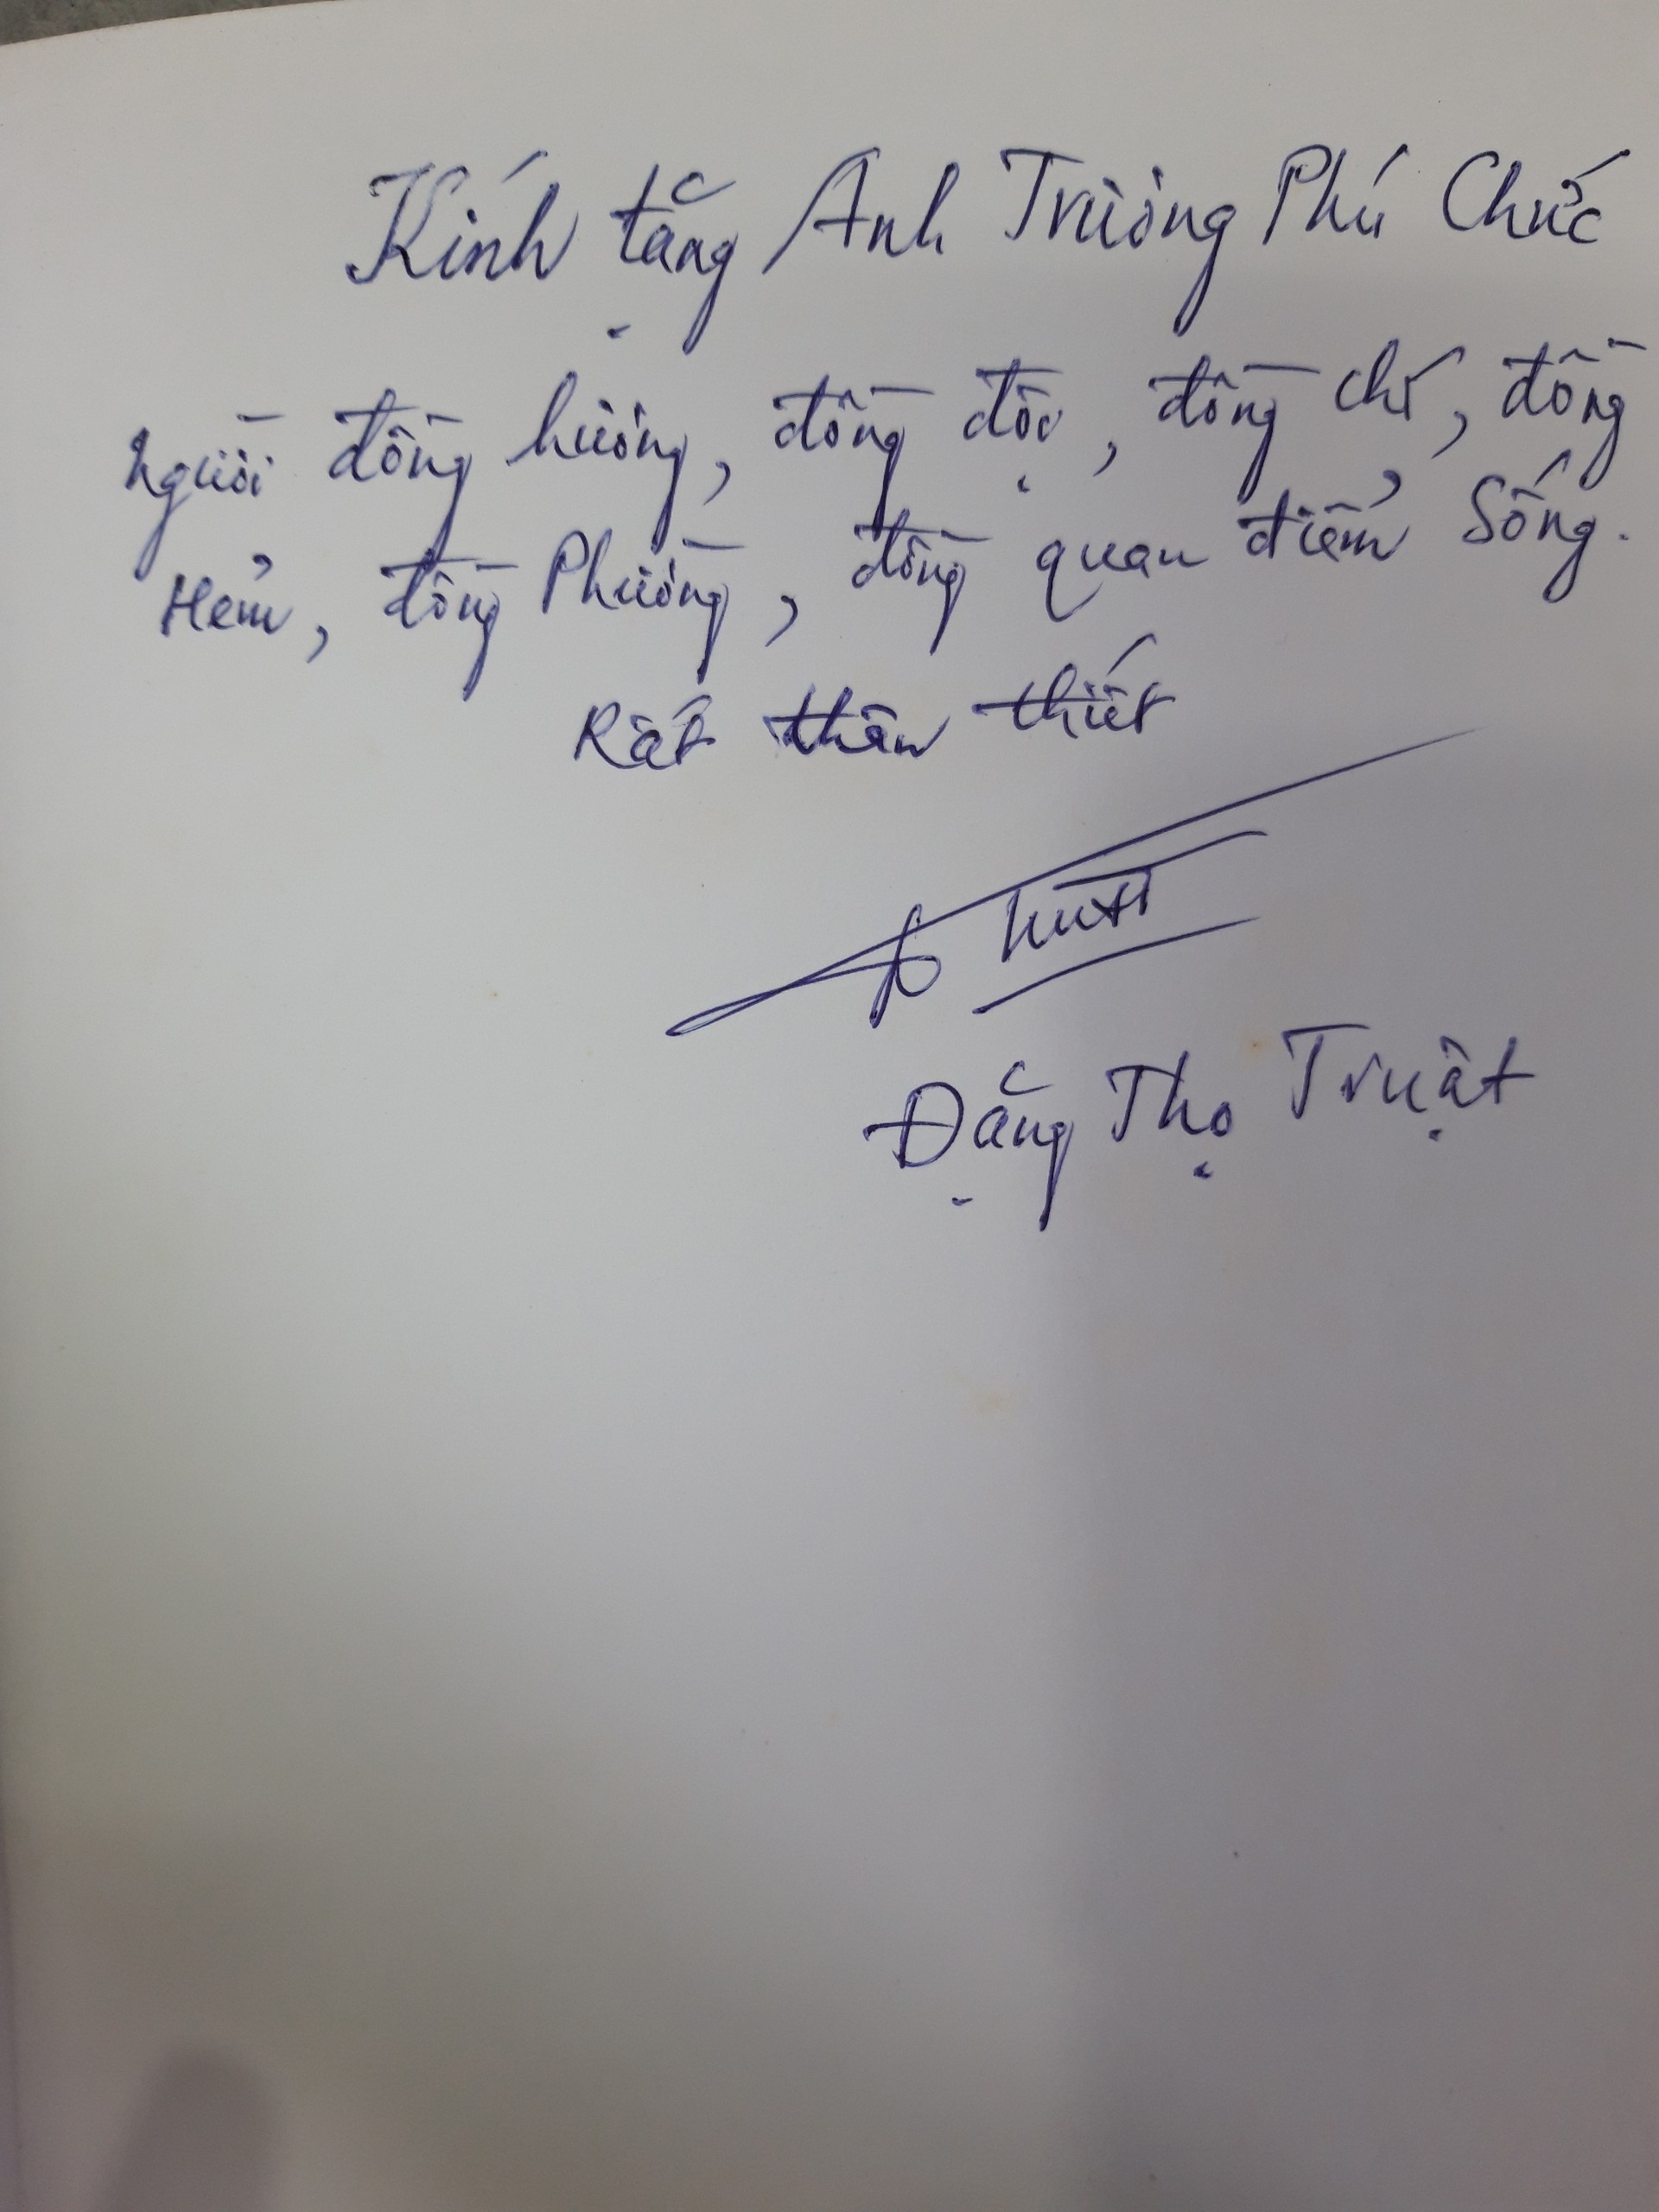 Kính tặng Anh Trương Phú Chức
Người đồng hương, đồng đội, đồng chí, đồng
Hẻm, đồng Phường, đồng quan điểm Sống.
Rất thân thiết
Đặng Thọ Truật